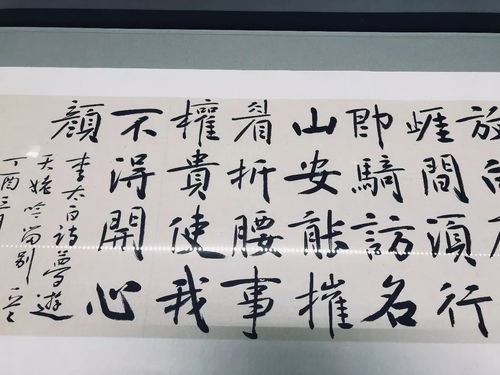 放
崕間須行
即騎訪名
山安能摧
眉折腰事
權貴使我
不得開心
顏
李太白詩夢遊
天姥吟留別
丁酉三月